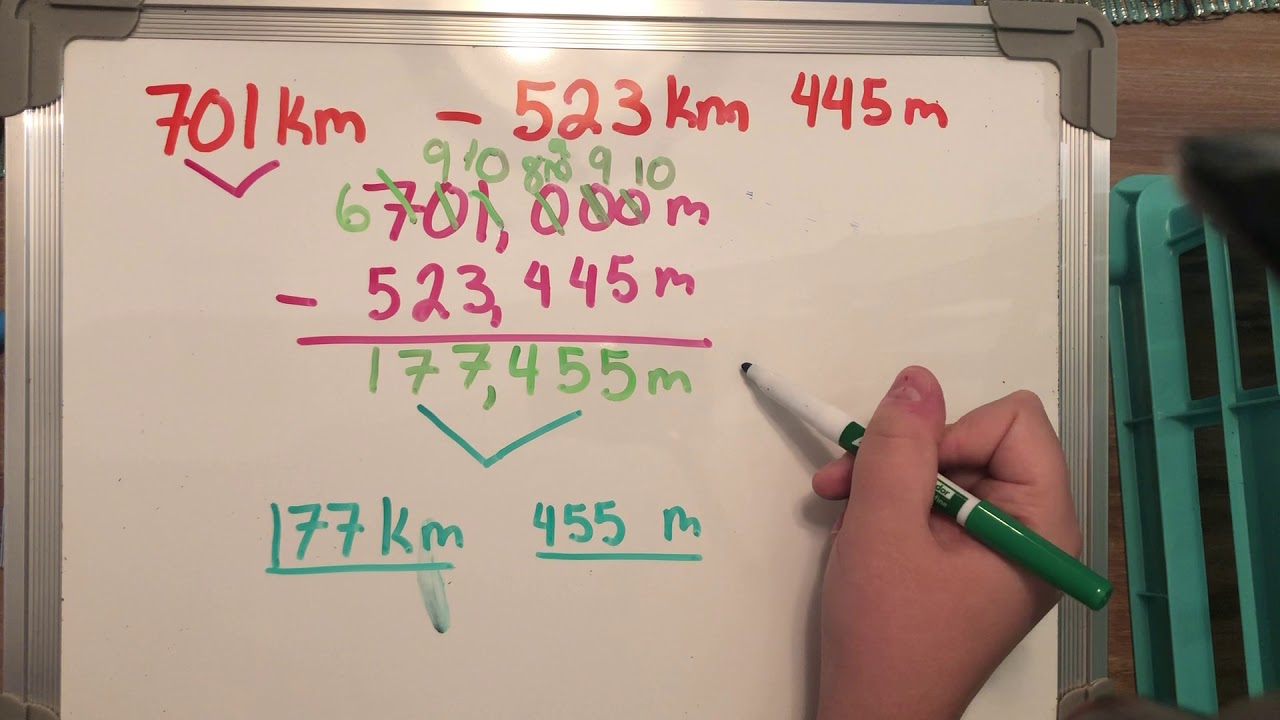 701 km - 523 km 445 m
9 10 9 9 10
6 701,000 m
- 523,445 m
177,455 m
177 km 455 m